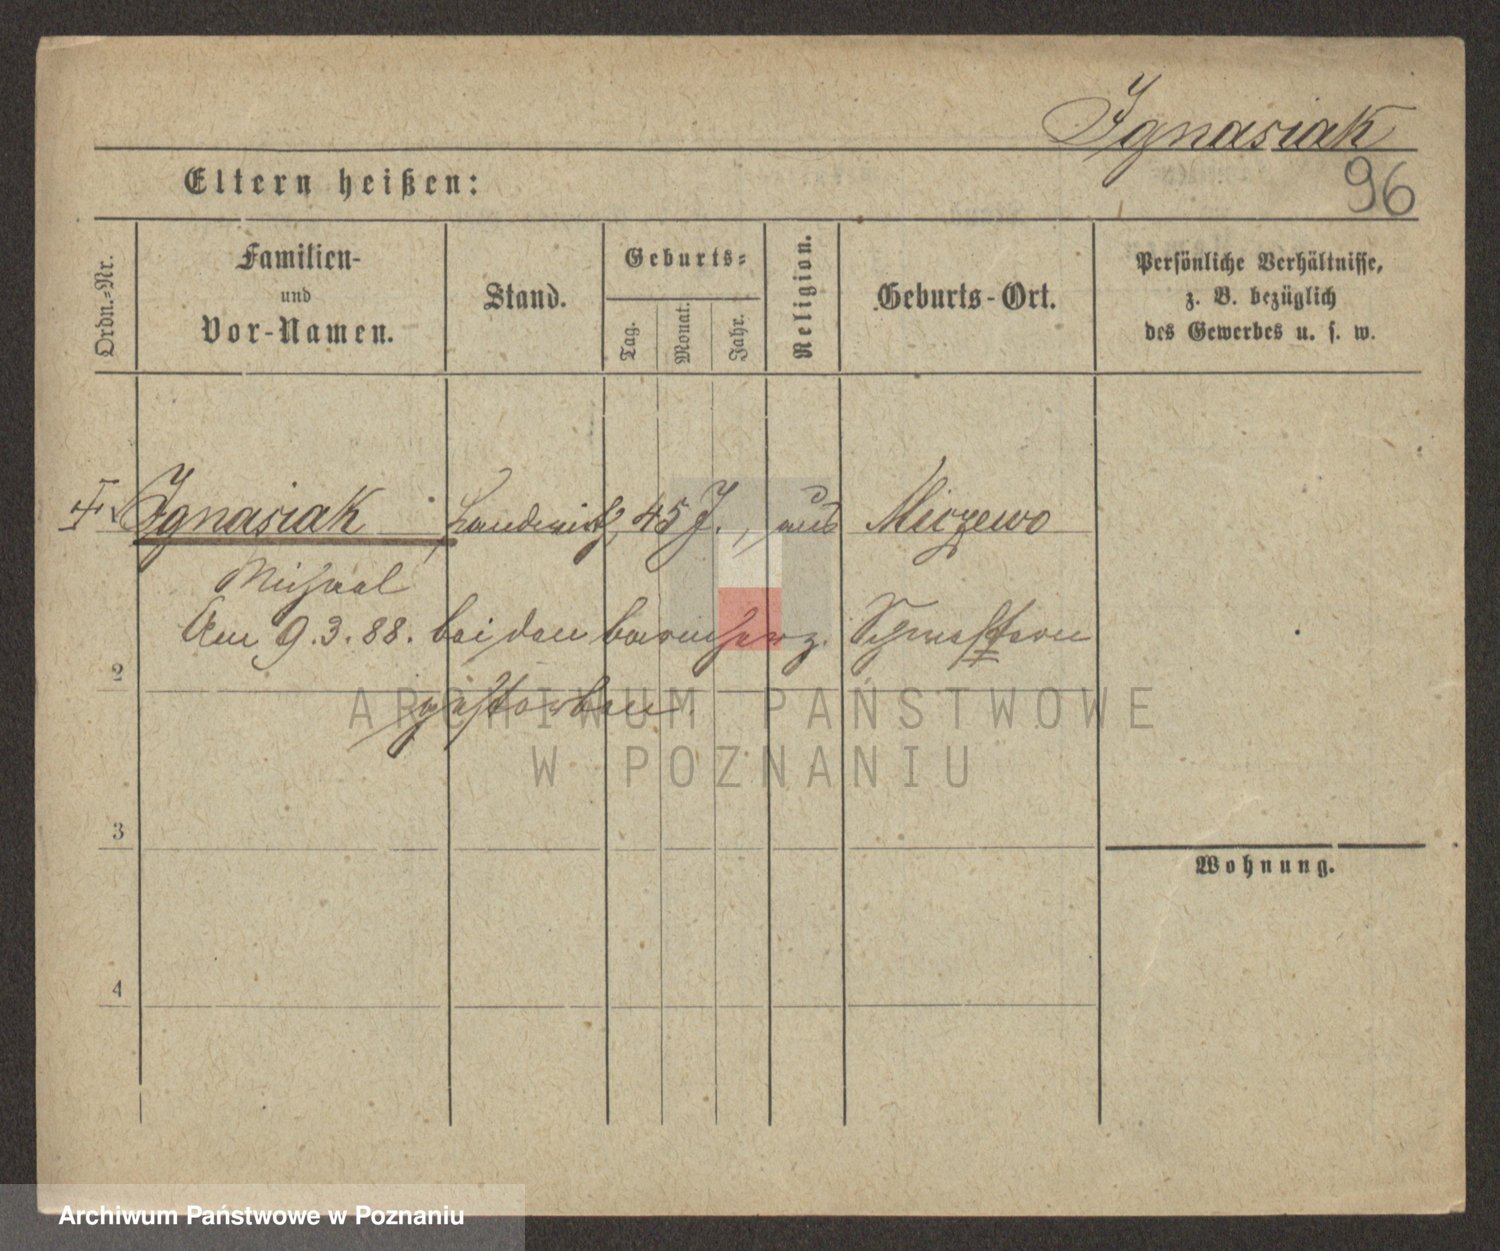 Ignasiak
96
Eltern heißen:
Ordn.=Nr.
Familien-
und
Vor-Namen.
Stand.
Geburts=
Tag.
Monat.
Jahr.
Religion.
Geburts-Ort.
Persönliche Verhältnisse,
z. B. bezüglich
des Gewerbes u. s. w.
Ignasiak, Landwirth, 45 J., aus Mieczewo
Michael
Am 9.3.88. bei den barmherz. Schwestern
2
gestorben.
ARCHIWUM PAŃSTWOWE
W POZNANIU
3
Wohnung.
4
Archiwum Państwowe w Poznaniu